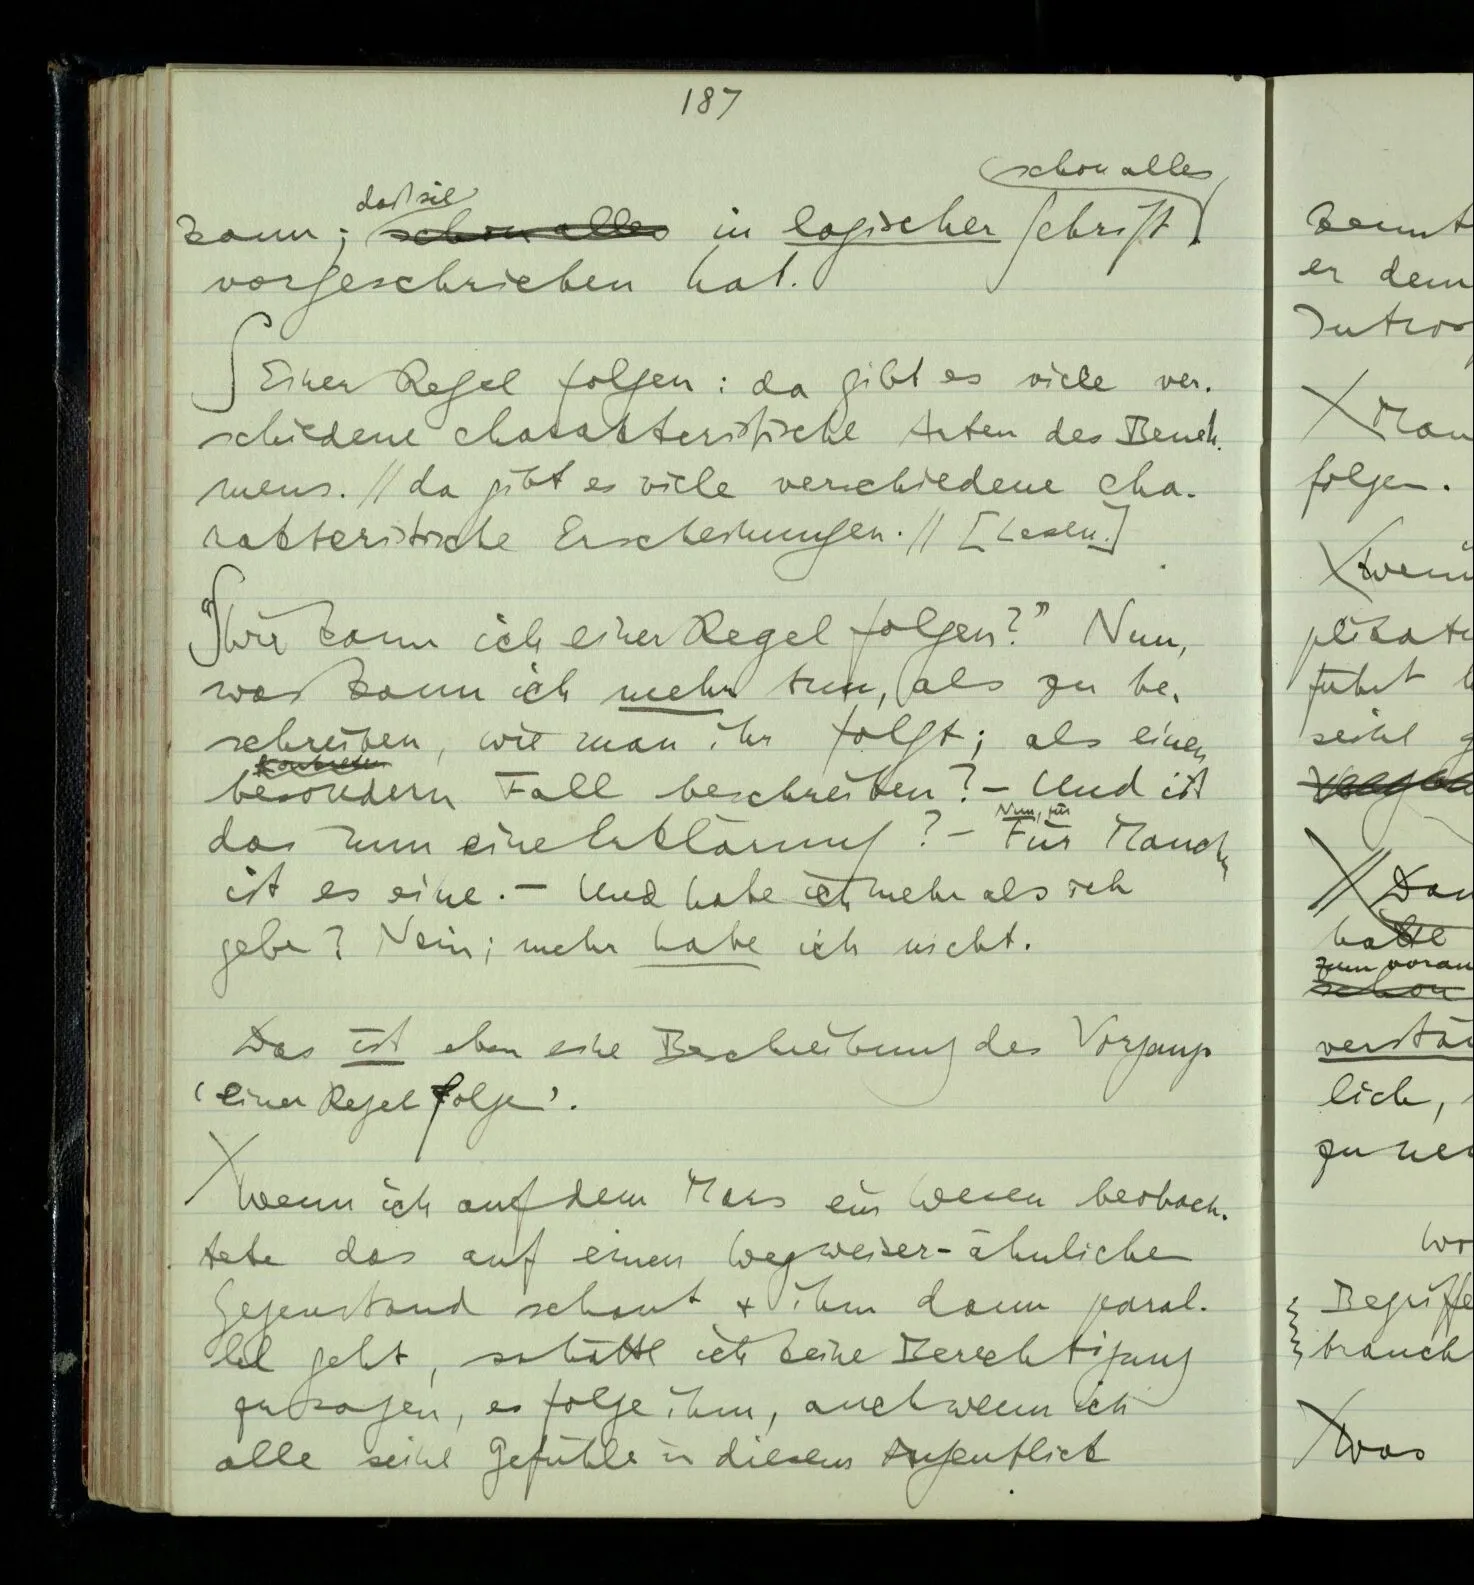 187
schon alles
daß sie
kann; schon alles in logischer Schrift
vorgeschrieben hat.
∫ Einer Regel folgen: da gibt es viele ver-
schiedene charakteristische Arten des Beneh-
mens. // da gibt es viele verschiedene cha-
rakteristische Erscheinungen. // [Lesen.]
∫ "Wie kann ich einer Regel folgen?" Nun,
was kann ich mehr tun, als zu be-
schreiben, wie man ihr folgt; als einen
konkreten
besondern Fall beschreiben? – Und ist
Nun, für
das nun eine Erklärung? – Für Manchen
ist es eine. – Und habe ich mehr als ich
gebe? Nein; mehr habe ich nicht.
Das ist eben eine Beschreibung des Vorgangs
'einer Regel folgen'.
X Wenn ich auf dem Mars ein Wesen beobach-
tete das auf einen Wegweiser-ähnlichen
Gegenstand schaut + ihm dann paral-
lel geht, so hätte ich keine Berechtigung
zu sagen, es folge ihm, auch wenn ich
alle seine Gefühle in diesem Augenblick
kennt
er dem
X Man
folgen.
X Wenn
führt
seine
X // Dan
hatte
zum voraus
schon
lich,
Begriffe
brauch
X Was